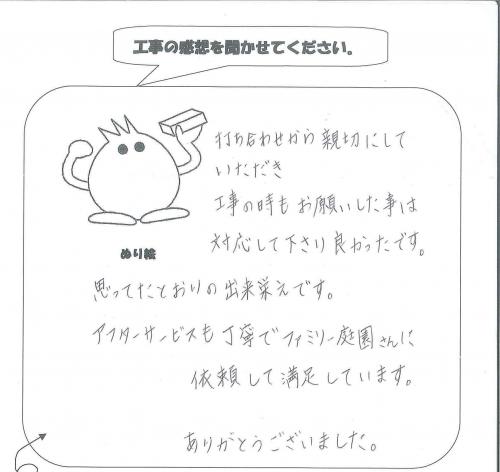 工事の感想を聞かせてください。
打ち合わせから親切にして
いただき
工事の時もお願いした事は
対応して下さり良かったです。
ぬり絵
思ってたとおりの出来栄えです。
アフターサービスも丁寧でファミリー庭園さんに
依頼して満足しています。
ありがとうございました。